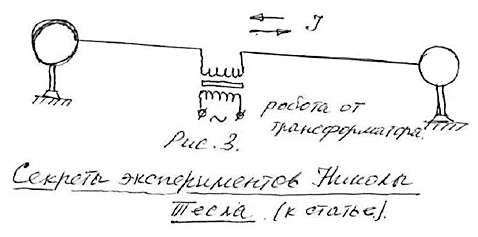 J
~
работа от
трансформатора.
Рис. 3.
Секреты экспериментов Николы
Тесла. (к статье).